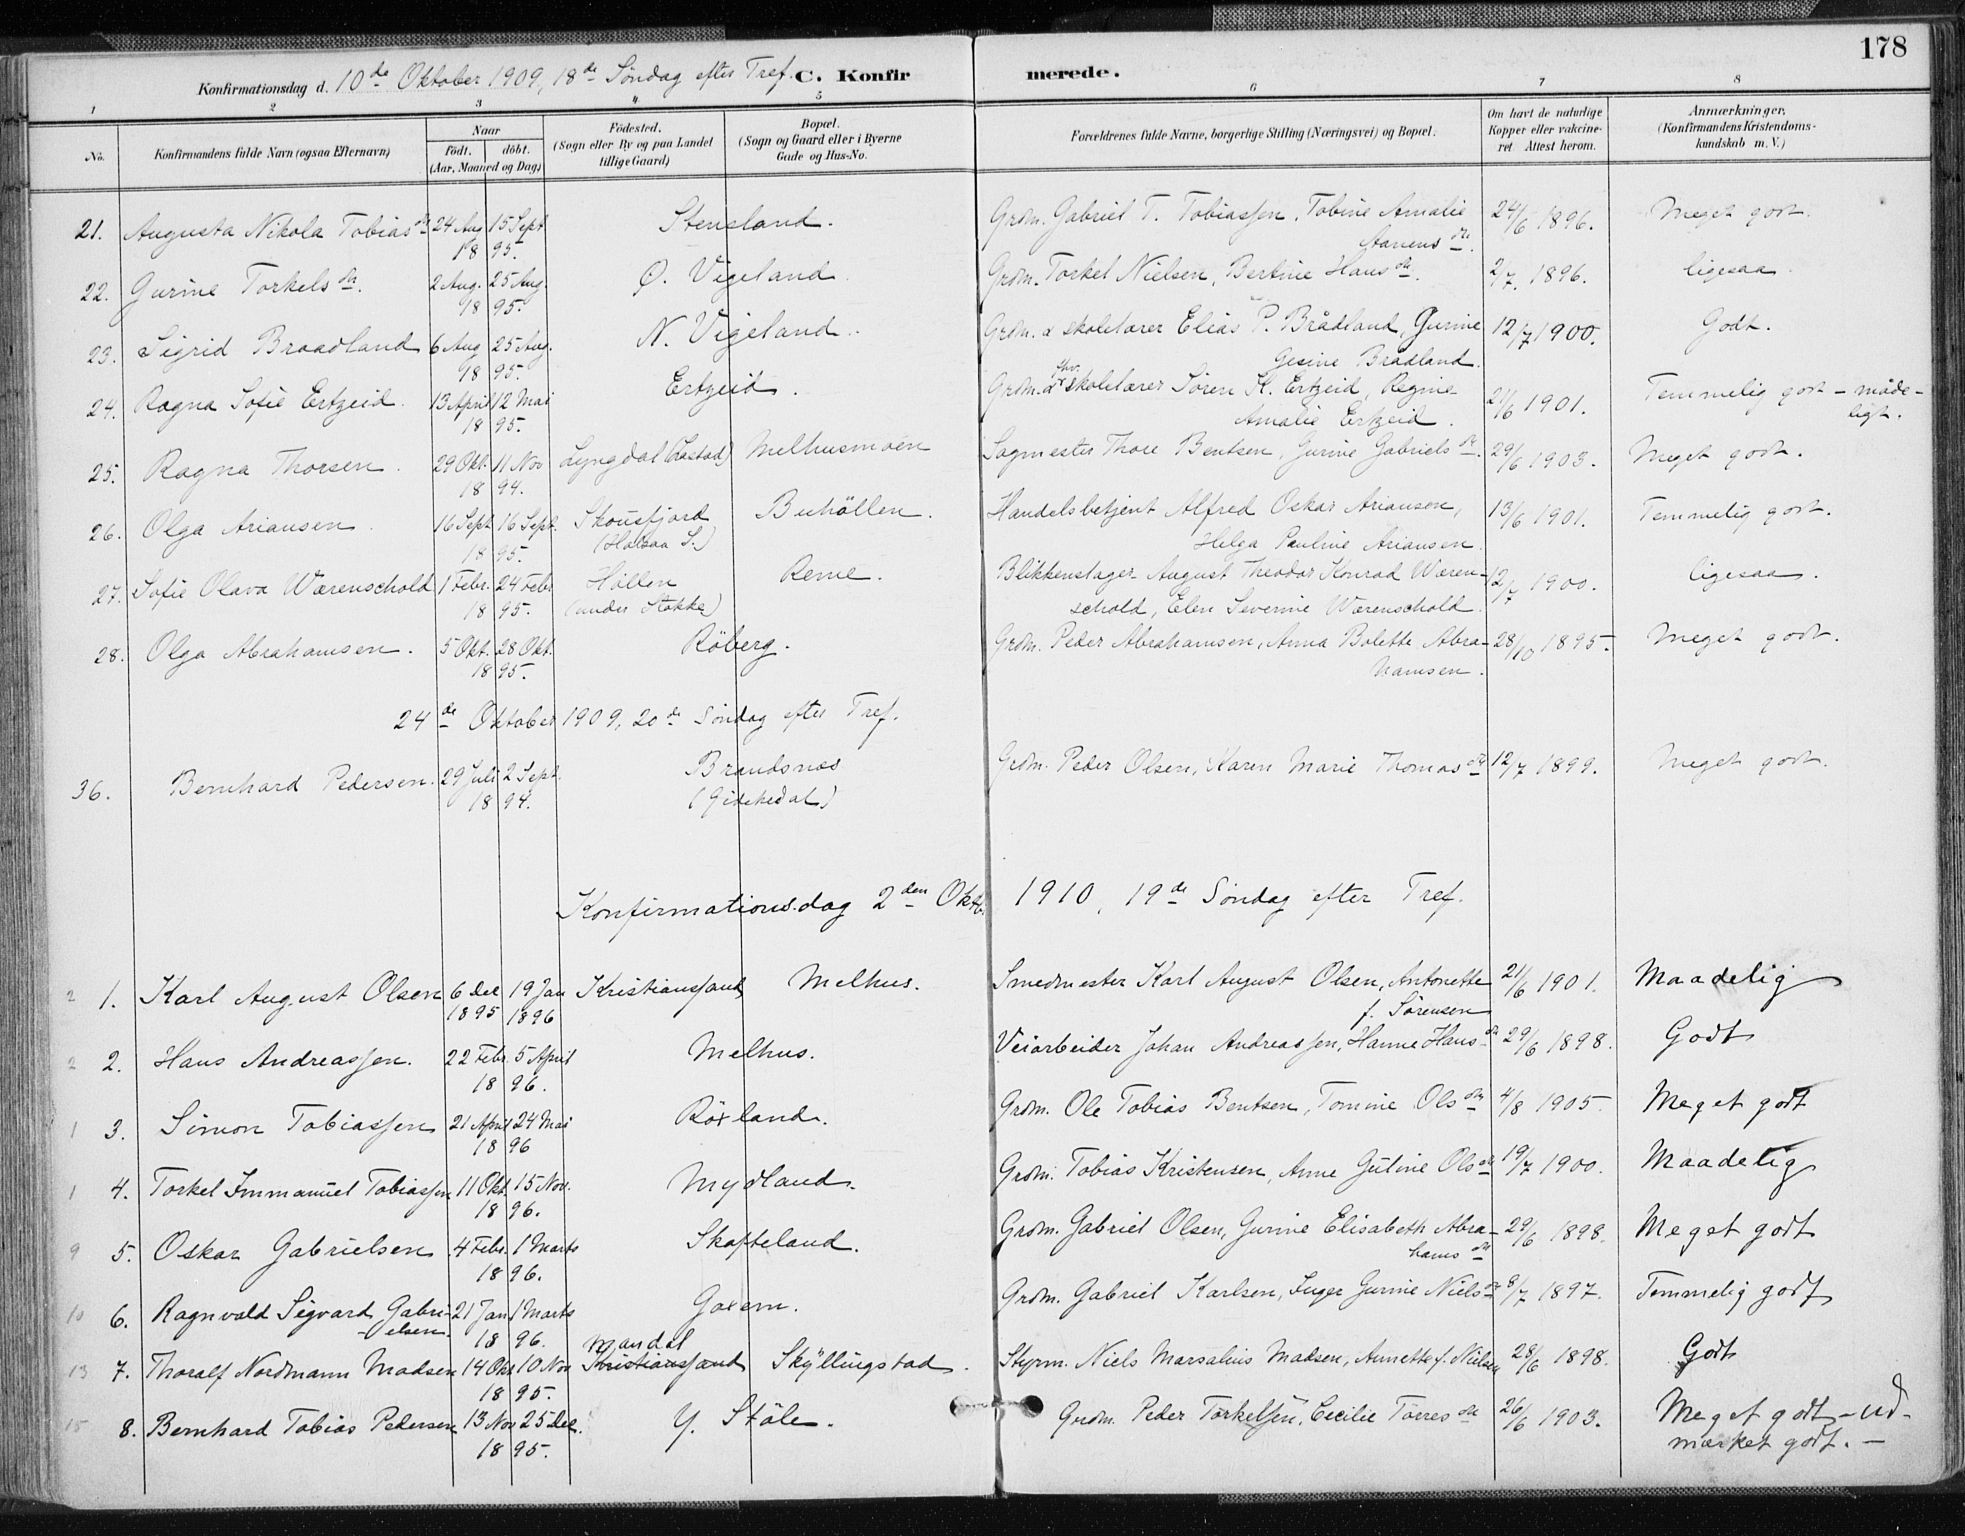 178
Konfirmationsdag d. 10de Oktober 1909, 18de Søndag efter Tref. C. Konfirmerede.
1 2 3 4 5 6 7 8
No. Konfirmandens fulde Navn (ogsaa Efternavn) Naar født. døbt. (Aar, Maaned og Dag) Fødested. (Sogn eller By og paa Landet tillige Gaard) Bopæl. (Sogn og Gaard eller i Byerne Gade og Hus-No. Forældrenes fulde Navne, borgerlige Stilling (Næringsvei) og Bopæl. Om havt de naturlige Kopper eller vakcineret Attest herom. Anmærkninger, (Konfirmandens Kristendomskundskab m. V.)
21. Augusta Nikola Tobiasdtr 24 Aug 15 Sept Stensland. Grdm. Gabriel T. Tobiassen, Tobine Amalie 24/6 1896. Meget godt.
18 95. dtr.
22. Gurine Torkelsdtr. 2 Aug. 25 Aug. Ø. Vigeland Grdm. Torkel Nielsen, Bertine Hansdtr. 2/7. 1896. ligesaa.
18 95.
23. Sigrid Braadland 6 Aug 25 Aug. N. Vigeland. Grdm. & skolelærer Elias P. Brådland, Gurine 12/7 1900. Godt.
18 95. Gesine Brådland.
24. Ragna Sofie Ertzeid 13 April 12 Mai Ertzeid. Grdm. & skolelærer Sören St. Ertzeid, Regine 21/6 1901. Temmelig godt – måde-
18 95. Amalie Ertzeid. ligt.
25. Ragna Thorsen. 29 Okt. 11 Nov Lyngdal Melhusmoen Sagmester Thore Bentsen, Gurine Gabrielsdtr. 29/6 1903. Meget godt.
18 94.
26. Olga Ariansen 16 Sept 16 Sept. Skousfjord Buhöllen. Handelsbetjent Alfred Oskar Ariansen, 13/6 1901. Temmelig godt.
18 95. (Halsaa S.) Helga Pauline Ariansen.
27. Sofie Olava Wærenschold 1 Febr. 24 Febr Höllen Reme. Blikkenslager August Theodor Konrad Wæren- 12/7 1900. ligesaa.
18 95. (under Stokke) schold, Elen Severine Wærenschold.
28. Olga Abrahamsen. 5 Okt. 28 Okt. Röberg. Grdm. Peder Abrahamsen, Anna Bolette Abra- 28/10 1895. Meget godt.
18 95. hamsen.
24de Oktober 1909, 20de Söndag efter Tref.
36. Bernhard Pedersen. 29 Juli 2 Sept. Brandsnes Grdm. Peder Olsen, Karen Marie Thomasdtr 12/7 1899. Meget godt.
18 94.
Konfirmationsdag 2den Oktb. 1910, 19de Söndag efter Tref.
2 1. Karl August Olsen 6 Des 19 Jan Kristianssand Melhus. Smedmester Karl August Olsen, Antonette 21/6 1901. Maadelig
1895 1896 f. Sörensen
2 2. Hans Andreassen. 22 Febr. 5 April Melhus. Veiarbeider Johan Andreassen, Hanne Hansdtr 29/6 1898. Godt
18 96.
1 3. Simon Tobiassen 21 April 24 Mai Röxland. Grdm. Ole Tobias Bentsen, Tomine Olsdtr 4/8 1905. Meget godt
18 96
1 4. Torkel Immanuel Tobiassen 11 Okt. 15 Nov. Mydland. Grdm. Tobias Kristensen, Anne Gutine Olsdtr 19/7 1900. Maadelig
18 96.
9 5. Oskar Gabrielsen 4 Febr. 1 Marts Skofteland. Grdm. Gabriel Olsen, Gurine Elisabeth Abra- 29/6 1898. Meget godt
18 96. hamsdtr
10 6. Ragnvald Sigvard Gabri- 21 Jan 1 Marts Goxem. Grdm. Gabriel Karlsen, Inger Gurine Nielsdtr 8/7 1897. Temmelig godt
-elsen. 18 96. Mandal
13 7. Thoralf Nordmann Madsen 14 Okt 10 Nov Kristianssand Skÿllingstad. Styrm. Niels Marsalius Madsen, Annette f. Nielsen 28/6 1898. Godt
18 95.
15 8. Bernhard Tobias Pedersen 13 Nov 25 Des. Y. Stöle. Grdm. Peder Torkelsen, Cecilie Torresdtr 26/6 1903. Meget godt – ud-
18 95. mærket godt. –